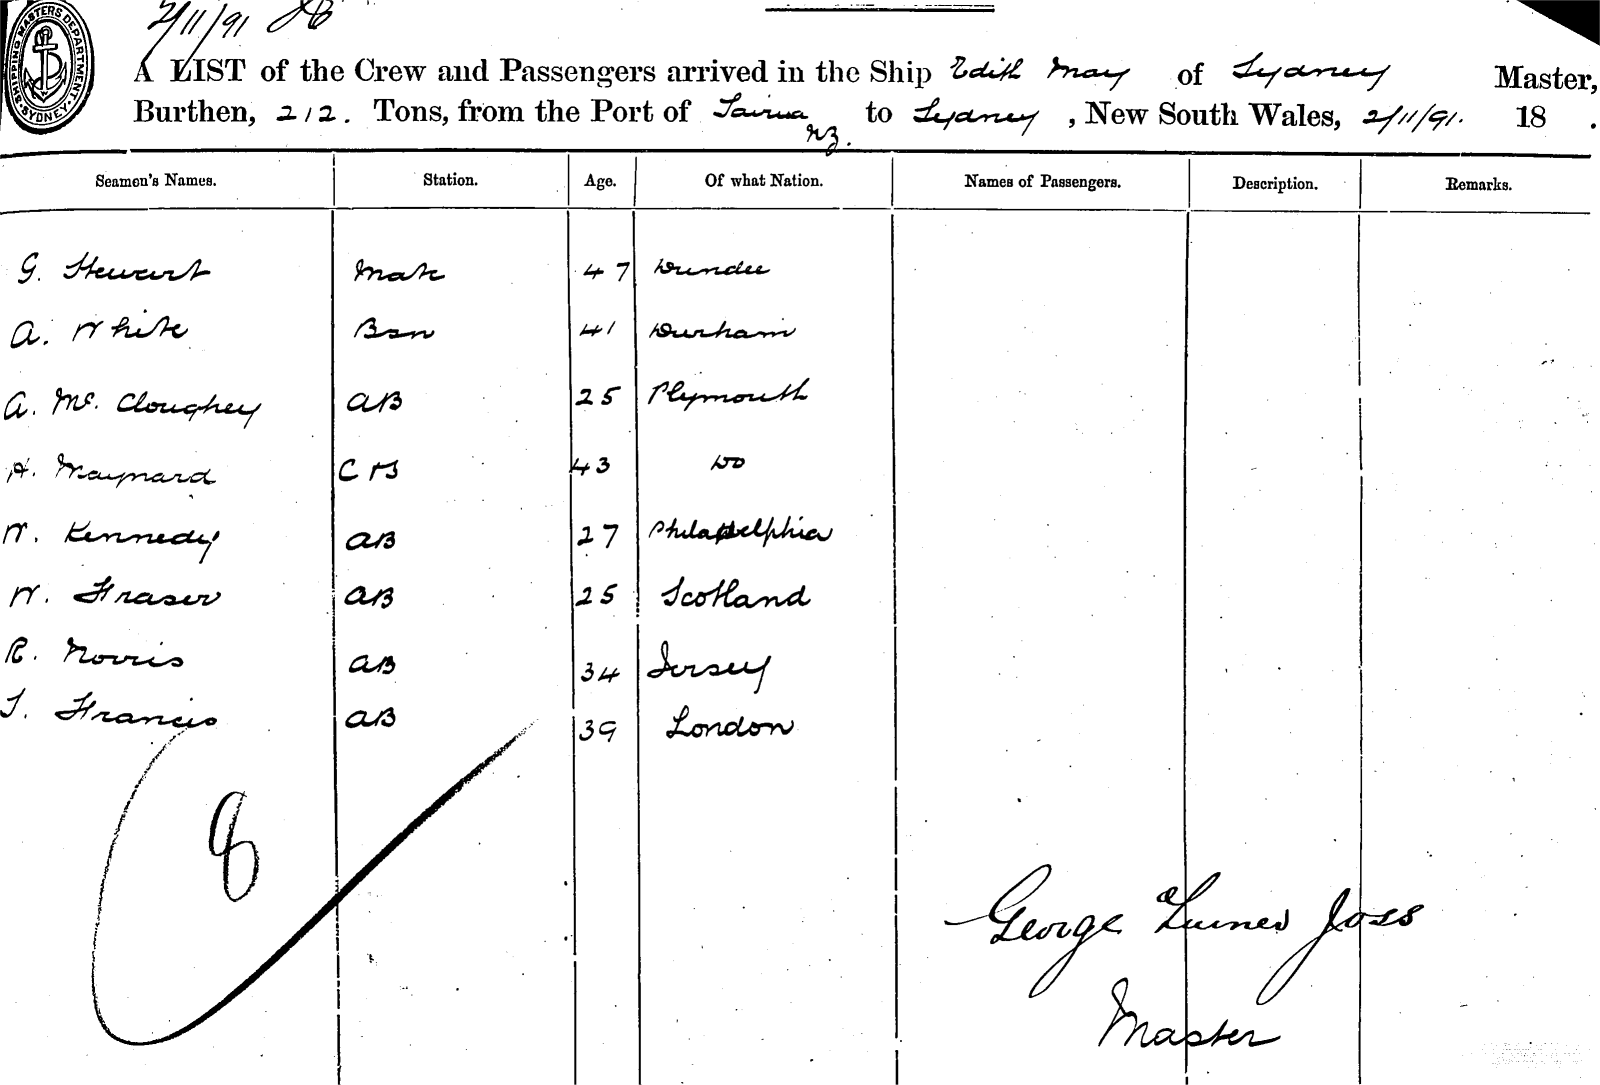 2/11/91
SHIPPING MASTERS DEPARTMENT
SYDNEY
A LIST of the Crew and Passengers arrived in the Ship Edith May of Sydney Master,
Burthen, 212. Tons, from the Port of Tairua NZ. to Sydney, New South Wales, 2/11/91. 18 .
Seamen's Names. Station. Age. Of what Nation. Names of Passengers. Description. Remarks.
G. Stewart Mate 47 Dundee
A. White Bsn 41 Durham
A. Mc. Cloughey AB 25 Plymouth
H. Maynard 43 Do
W. Kennedy AB 27 Philadelphia
W. Fraser AB 25 Scotland
R. Norris AB 34 Jersey
T. Francis AB 39 London
8
George Joss
Master